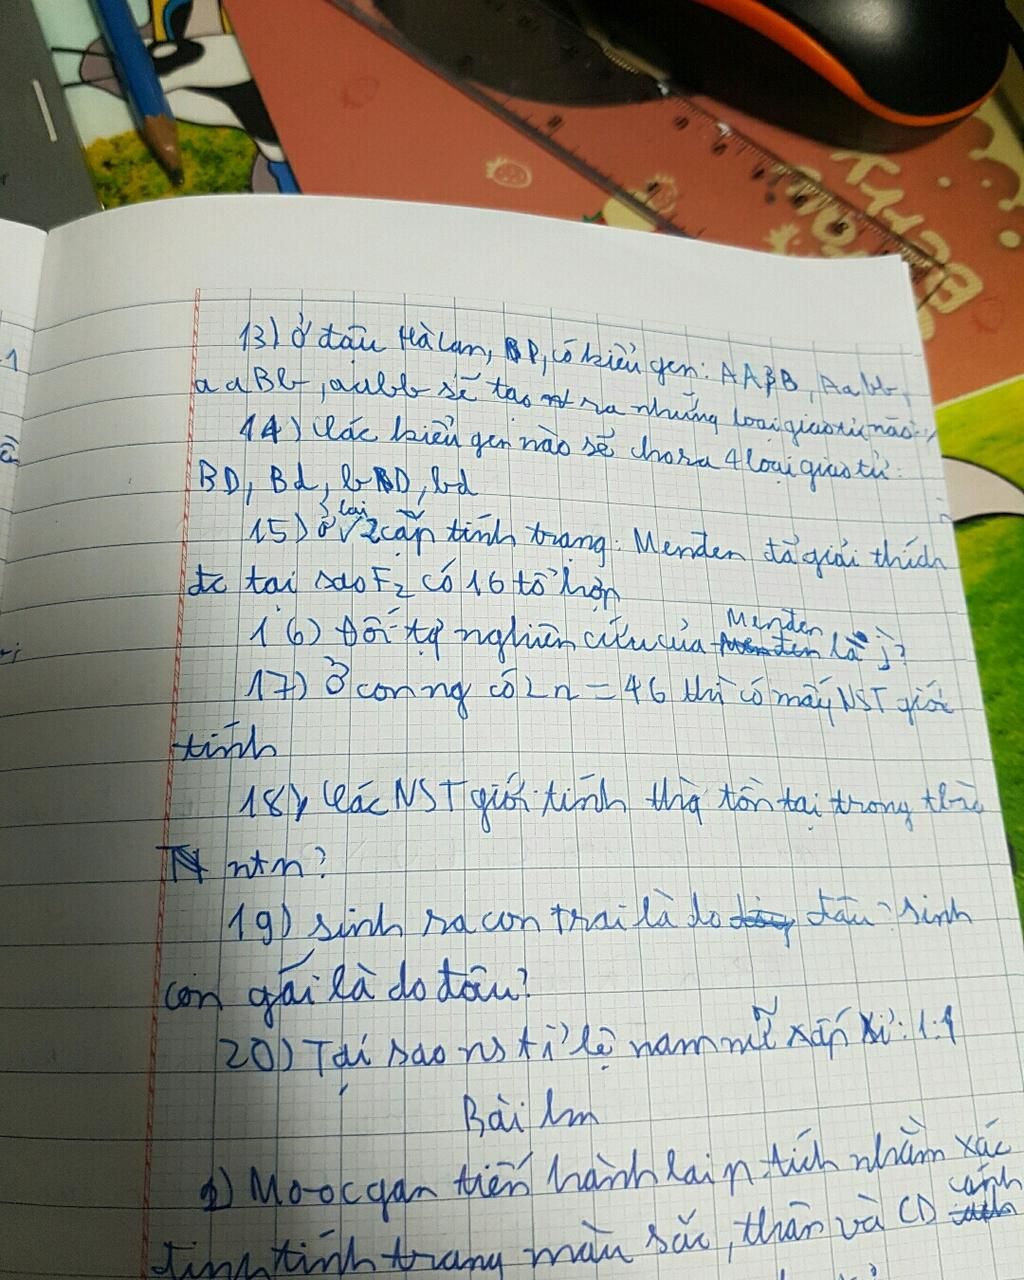 13) Ở đậu Hà Lan, P, có kiểu gen: AABB, Aabb,
aaBb, aabb sẽ tạo ra những loại giao tử nào
14) Các kiểu gen nào sẽ cho ra 4 loại giao tử:
BD, Bd, bD, bd
15) Ở lai 2 cặp tính trạng: Menđen đã giải thích
đc tại sao F2 có 16 tổ hợp
16) Đối tg nghiên cứu của Menđen là j?
17) Ở con ng có 2n = 46 thì có mấy NST giới
tính
18) Các NST giới tính thg tồn tại trong
ntn?
19) sinh ra con trai là do đâu? sinh
con gái là do đâu?
20) Tại sao ns tỉ lệ nam nữ xấp xỉ: 1:1
Bài lm
Moocgan tiến hành lai p.tích nhằm xác
định tính trạng màu sắc, thân và CD cánh